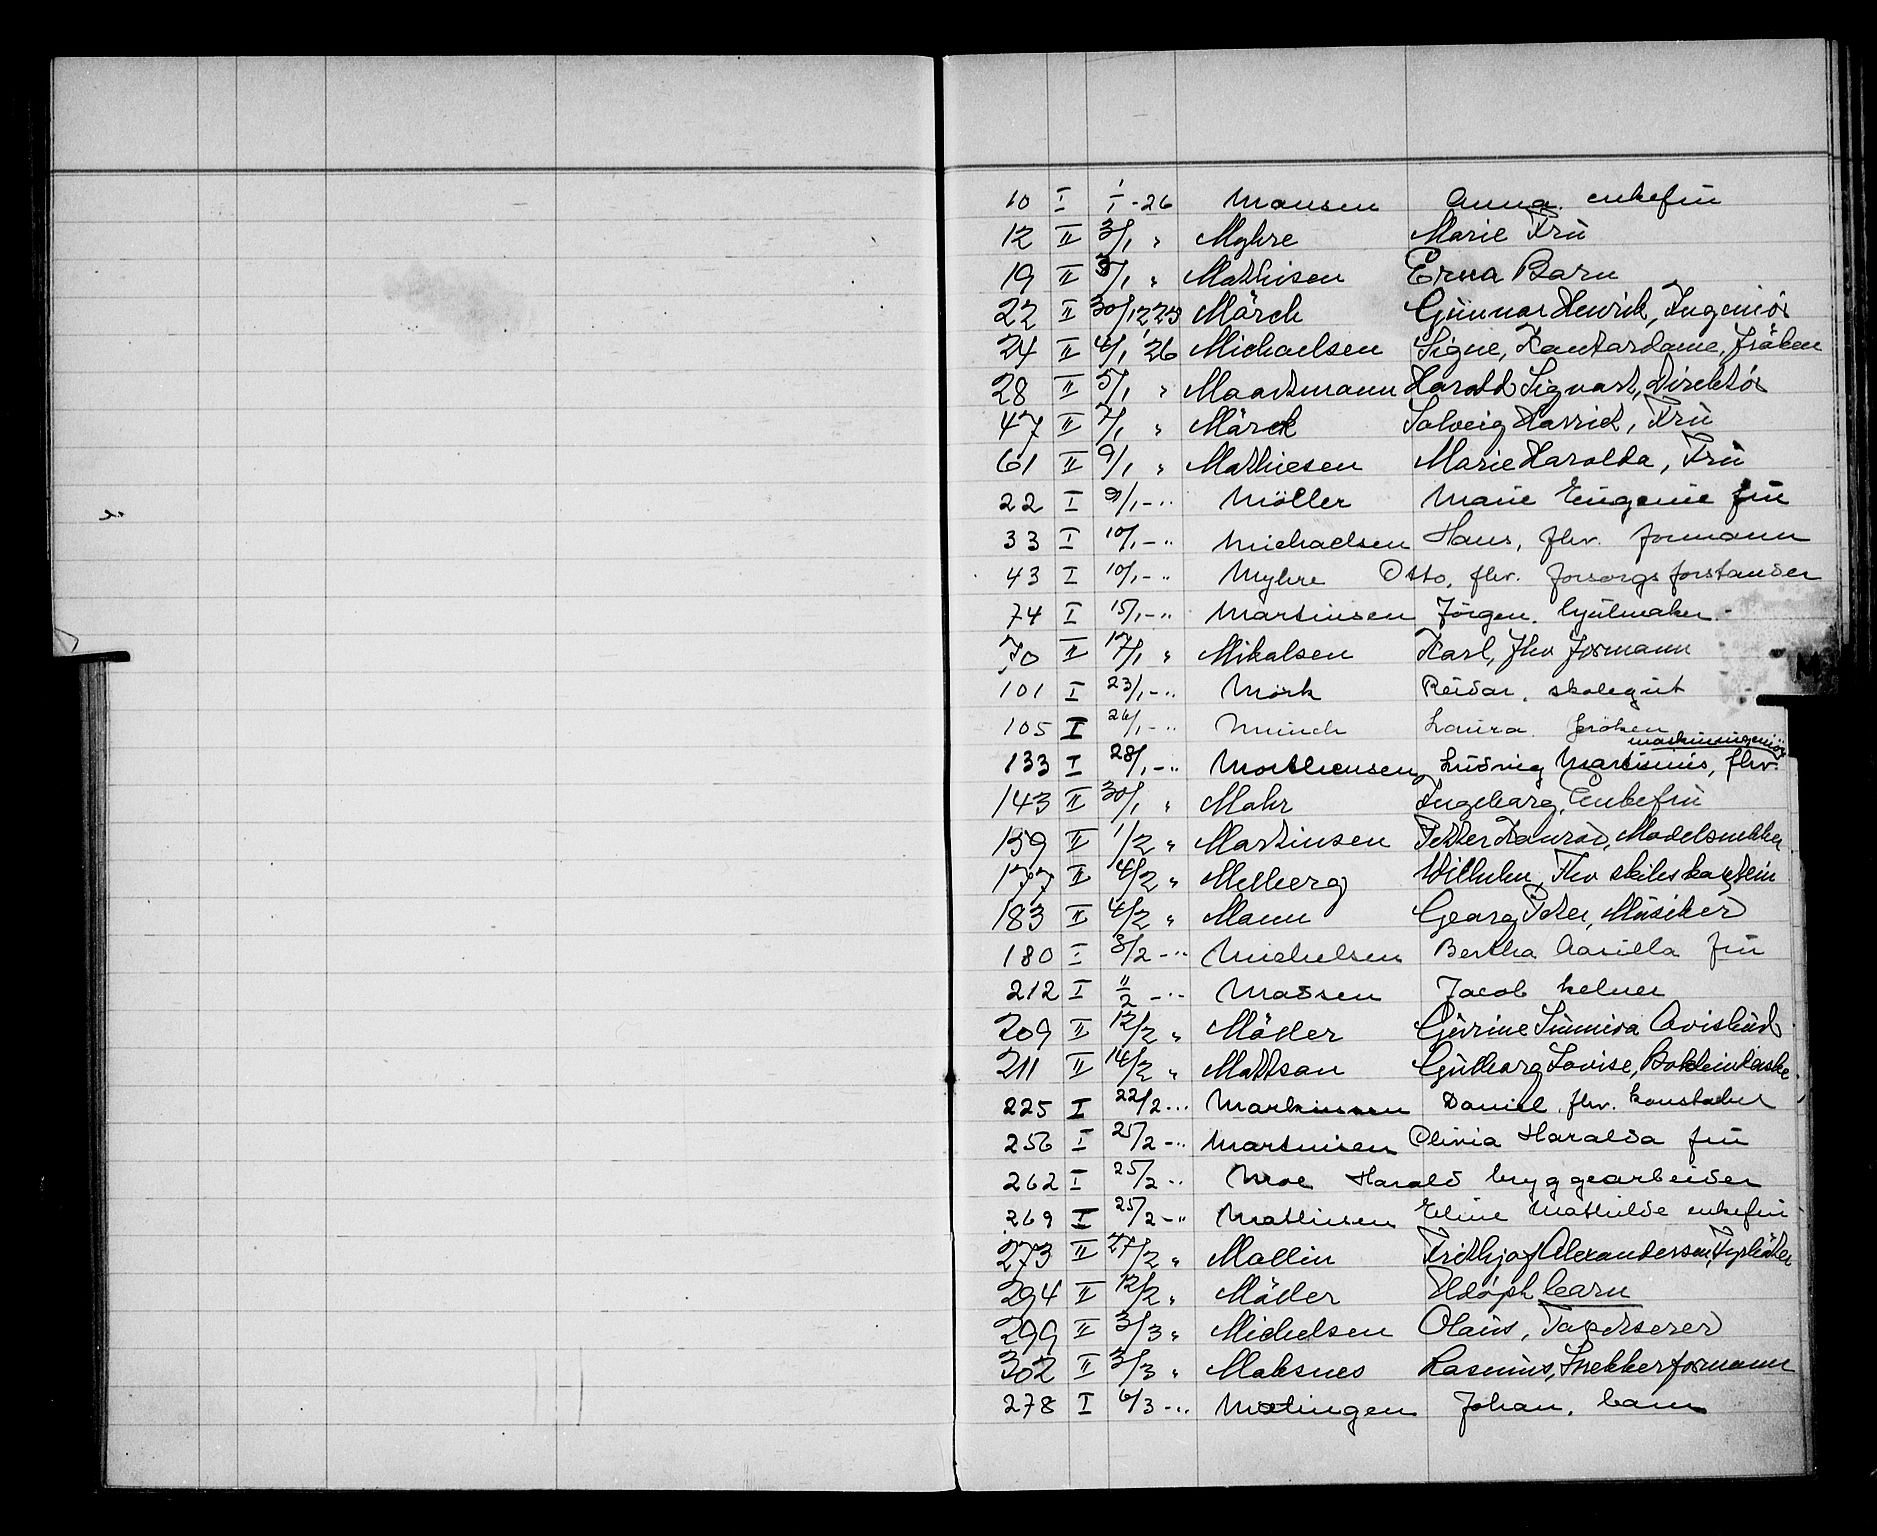 10 I 1/1-26 Monsen Anna. enkefrü
12 II 3/1 " Myhre Marie Frü
19 II 3/1 " Mathisen Erna Barn
22 II 30/12 25 Mörch Günnar Henrik, Ingeniör
24 II 4/1 '26 Michaelsen Signe, Kontordame, fröken
28 II 5/1 " Maartmann Harald Sigvart, Direktör
47 II 7/1 " Mörck Solveig Harriet, Frü
61 II 9/1 " Mathiesen Marie Haralda, Frü
22 I 9/1-" Möller Marie Eugenie frü
33 I 10/1-" Michaelsen Hans, fhv. formann
43 I 10/1-" Myhre Otto, fhv. forsorgsforstander
74 I 15/1-" Martinsen Jörgen. hjulmaker.
70 II 17/1 " Mikalsen Karl, fhv formann
101 I 23/1-" Mörk Reidar. skolegüt
105 I 26/1-" Münch Laura. fröken
maskiningeniör
133 I 28/1-" Morthensen Lüdvig Martinius, fhv.
143 II 30/1 " Mohr Ingeborg, Enkefrü
159 II 1/2 " Martinsen Petter Konrad, Modelsnekker
177 II 4/2 " Melberg Wilhelm, Fhv skibskaptein
183 II 4/2 " Mann Georg Peter, Müsiker
180 I 8/2-" Michelsen Bertha frü
212 I 11/2-" Madsen Jacob kelner
209 II 12/2 " Möller Gürine Sünniva
211 II 14/2 " Mattson Gülborg Lovise,
225 I 22/2-" Martinsen Daniel. fhv. konstabel
256 I 25/2-" Martinsen Olivia Haralda frü
262 I 25/2-" Moe Harald bryggearbeider
269 I 25/2-" Mathisen Eline Mathilde enkefrü
273 II 27/2 " Mollin Frithjof Alexanderson, Fyrböter
294 II 12/2 " Möller barn
299 II 3/3 " Michelsen Olaüs, Tapetserer
302 II 3/3 " Moksnes Rasmüs, Snekkerformann
278 I 6/3-" Johan, barn